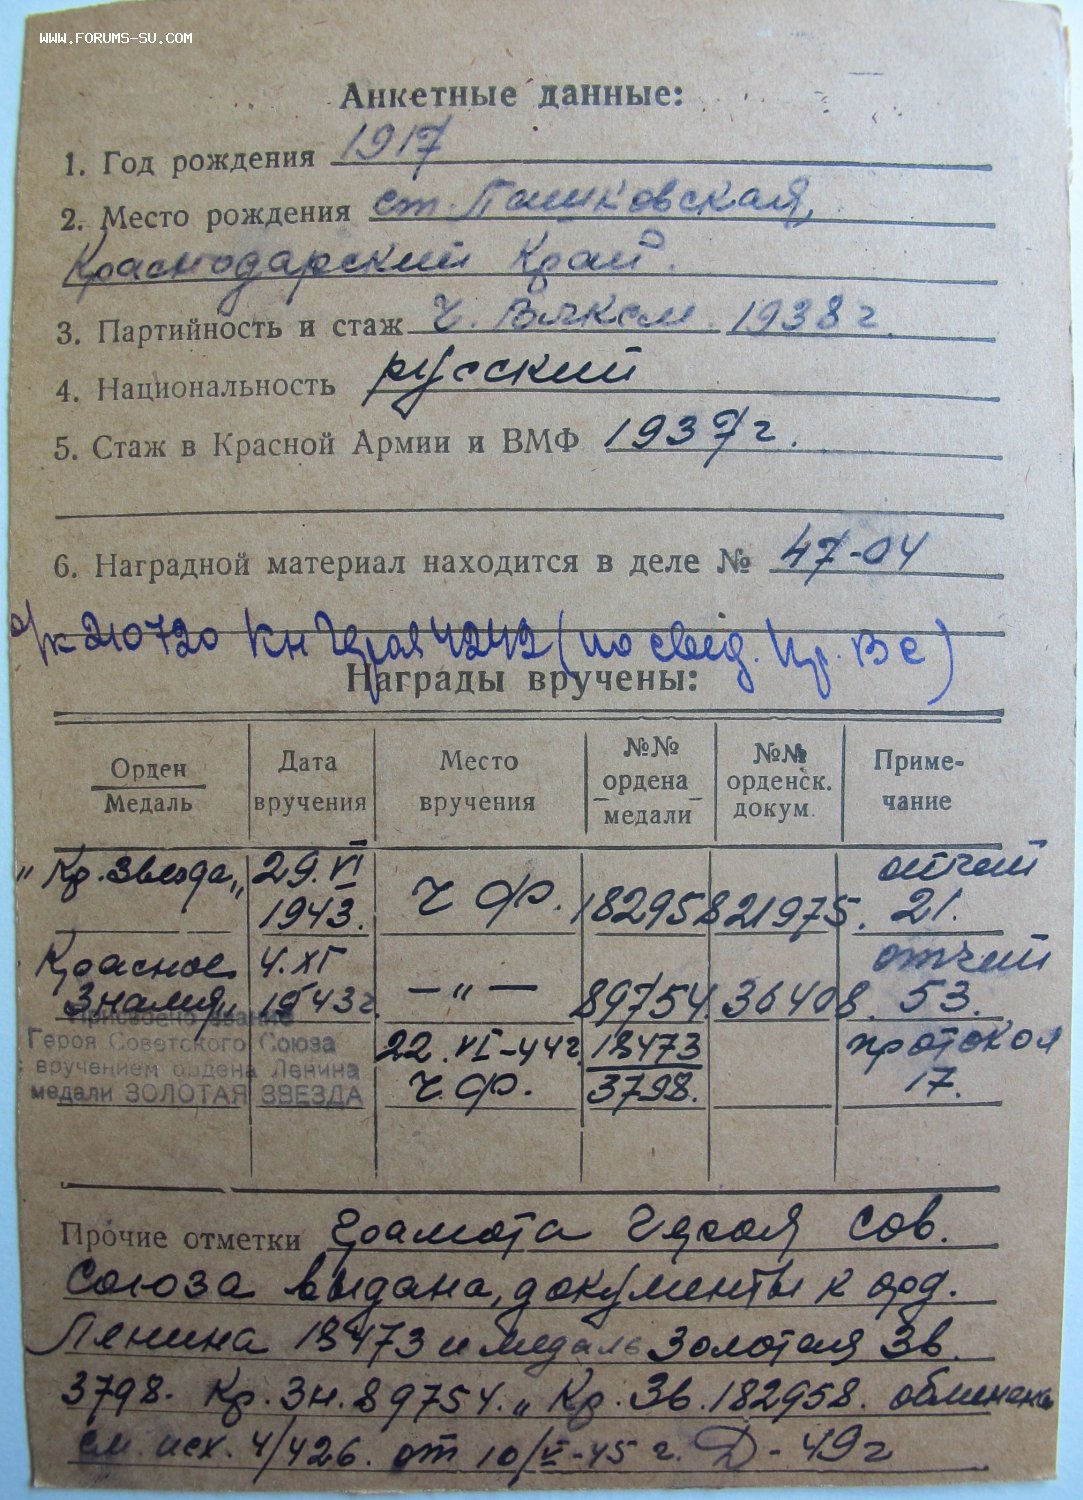 WWW.FORUMS-SU.COM
Анкетные данные:
1. Год рождения 1917
2. Место рождения ст. Пашковская,
Краснодарский Край.
3. Партийность и стаж Ч. ВЛКСМ. 1938 г.
4. Национальность русский
5. Стаж в Красной Армии и ВМФ 1937 г.
6. Наградной материал находится в деле № 47-04
о/к 210720 Кн Героя 4242 (по свед. Пр. ВС)
Награды вручены:
Орден Медаль Дата вручения Место вручения №№ ордена медали №№ орденск. докум. Приме-чание
„Кр. Звезда„ 29.VI 1943. Ч Ф. 182958 821975. отчет 21.
Красное Знамя„ 4.XI 1943 г. —„— 89754. 36408. отчет 53.
Присвоено звание
Героя Советского Союза
с вручением ордена Ленина
медали ЗОЛОТАЯ ЗВЕЗДА
22.VI-44 г. Ч.Ф. 18473 3798. протокол 17.
Прочие отметки Грамота Героя Сов.
Союза выдана, документы к орд.
Ленина 18473 и медаль Золотая Зв.
3798. Кр. Зн. 89754. „Кр. Зв. 182958. обменены
см. исх. 4/426. от 10/V-45 г. Д-49 г